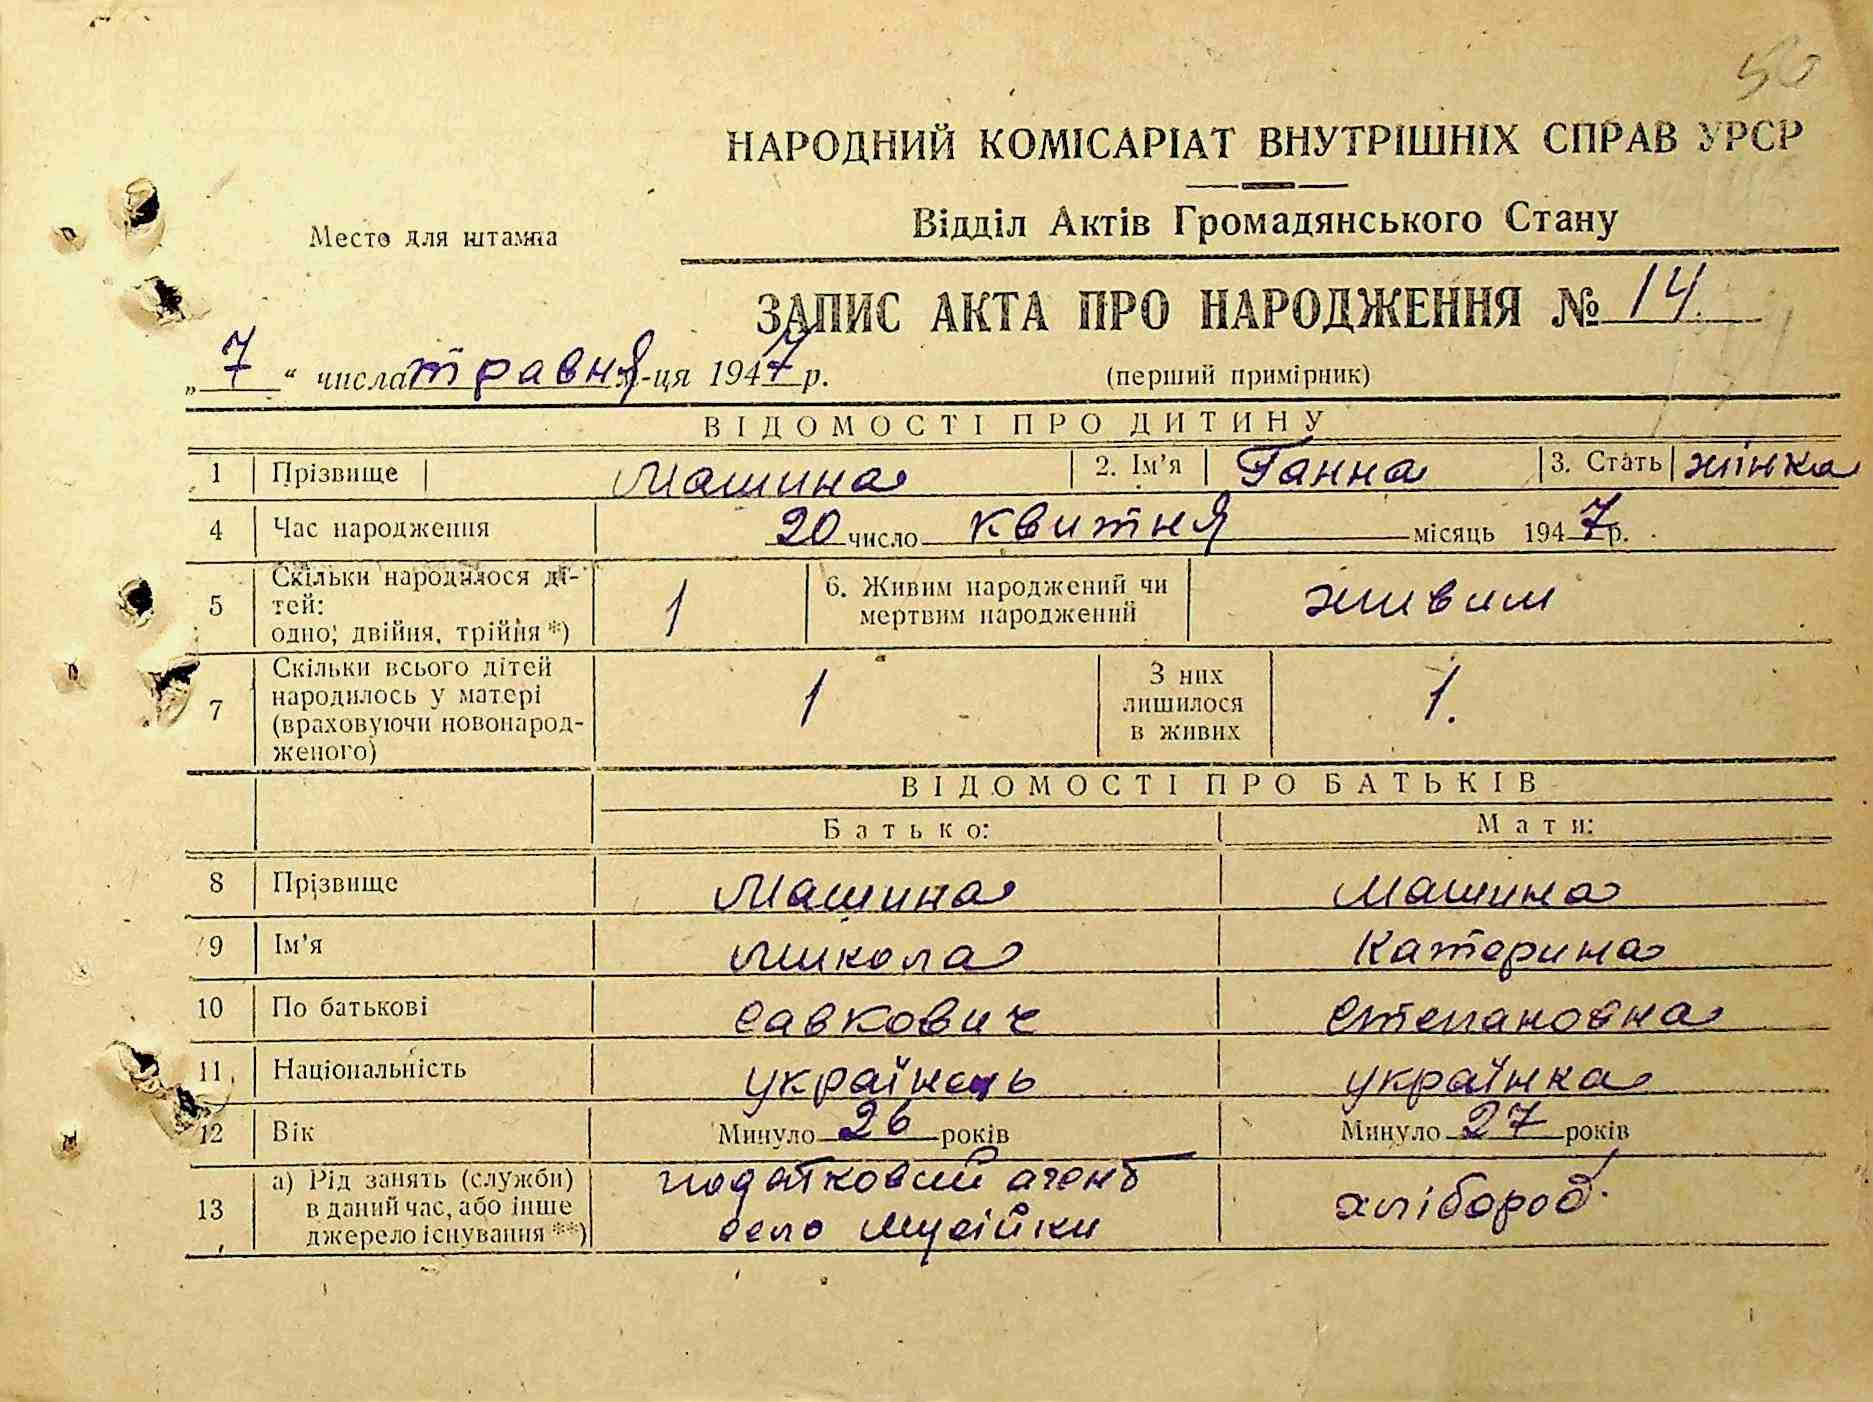 50
НАРОДНИЙ КОМІСАРІАТ ВНУТРІШНІХ СПРАВ УРСР
Место для штампа
Відділ Актів Громадянського Стану
ЗАПИС АКТА ПРО НАРОДЖЕННЯ № 14.
„7“ числа травня м-ця 1947 р.
(перший примірник)
ВІДОМОСТІ ПРО ДИТИНУ
1 Прізвище Машина 2. Ім’я Ганна 3. Стать жінка
4 Час народження 20 число квитня місяць 1947 р.
5 Скільки народилося ді-
тей:
одно, двійня, трійня *) 1
6. Живим народжений чи
мертвим народжений живим
7 Скільки всього дітей
народилось у матері
(враховуючи новонарод-
женого) 1
З них
лишилося
в живих 1.
ВІДОМОСТІ ПРО БАТЬКІВ
Батько: Мати:
8 Прізвище Машина Машина
9 Ім’я Микола Катерина
10 По батькові Савкович Степановна
11 Національність українець українка
12 Вік Минуло 26 років Минуло 27 років
13 а) Рід занять (служби)
в даний час, або інше
джерело існування **)
податковий агент
село Мусійки
хлібороб.